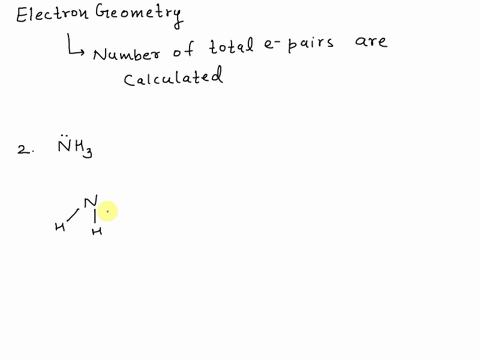 Electron Geometry
↳ Number of total e- pairs are
calculated
2. N̈H₃
N
H H